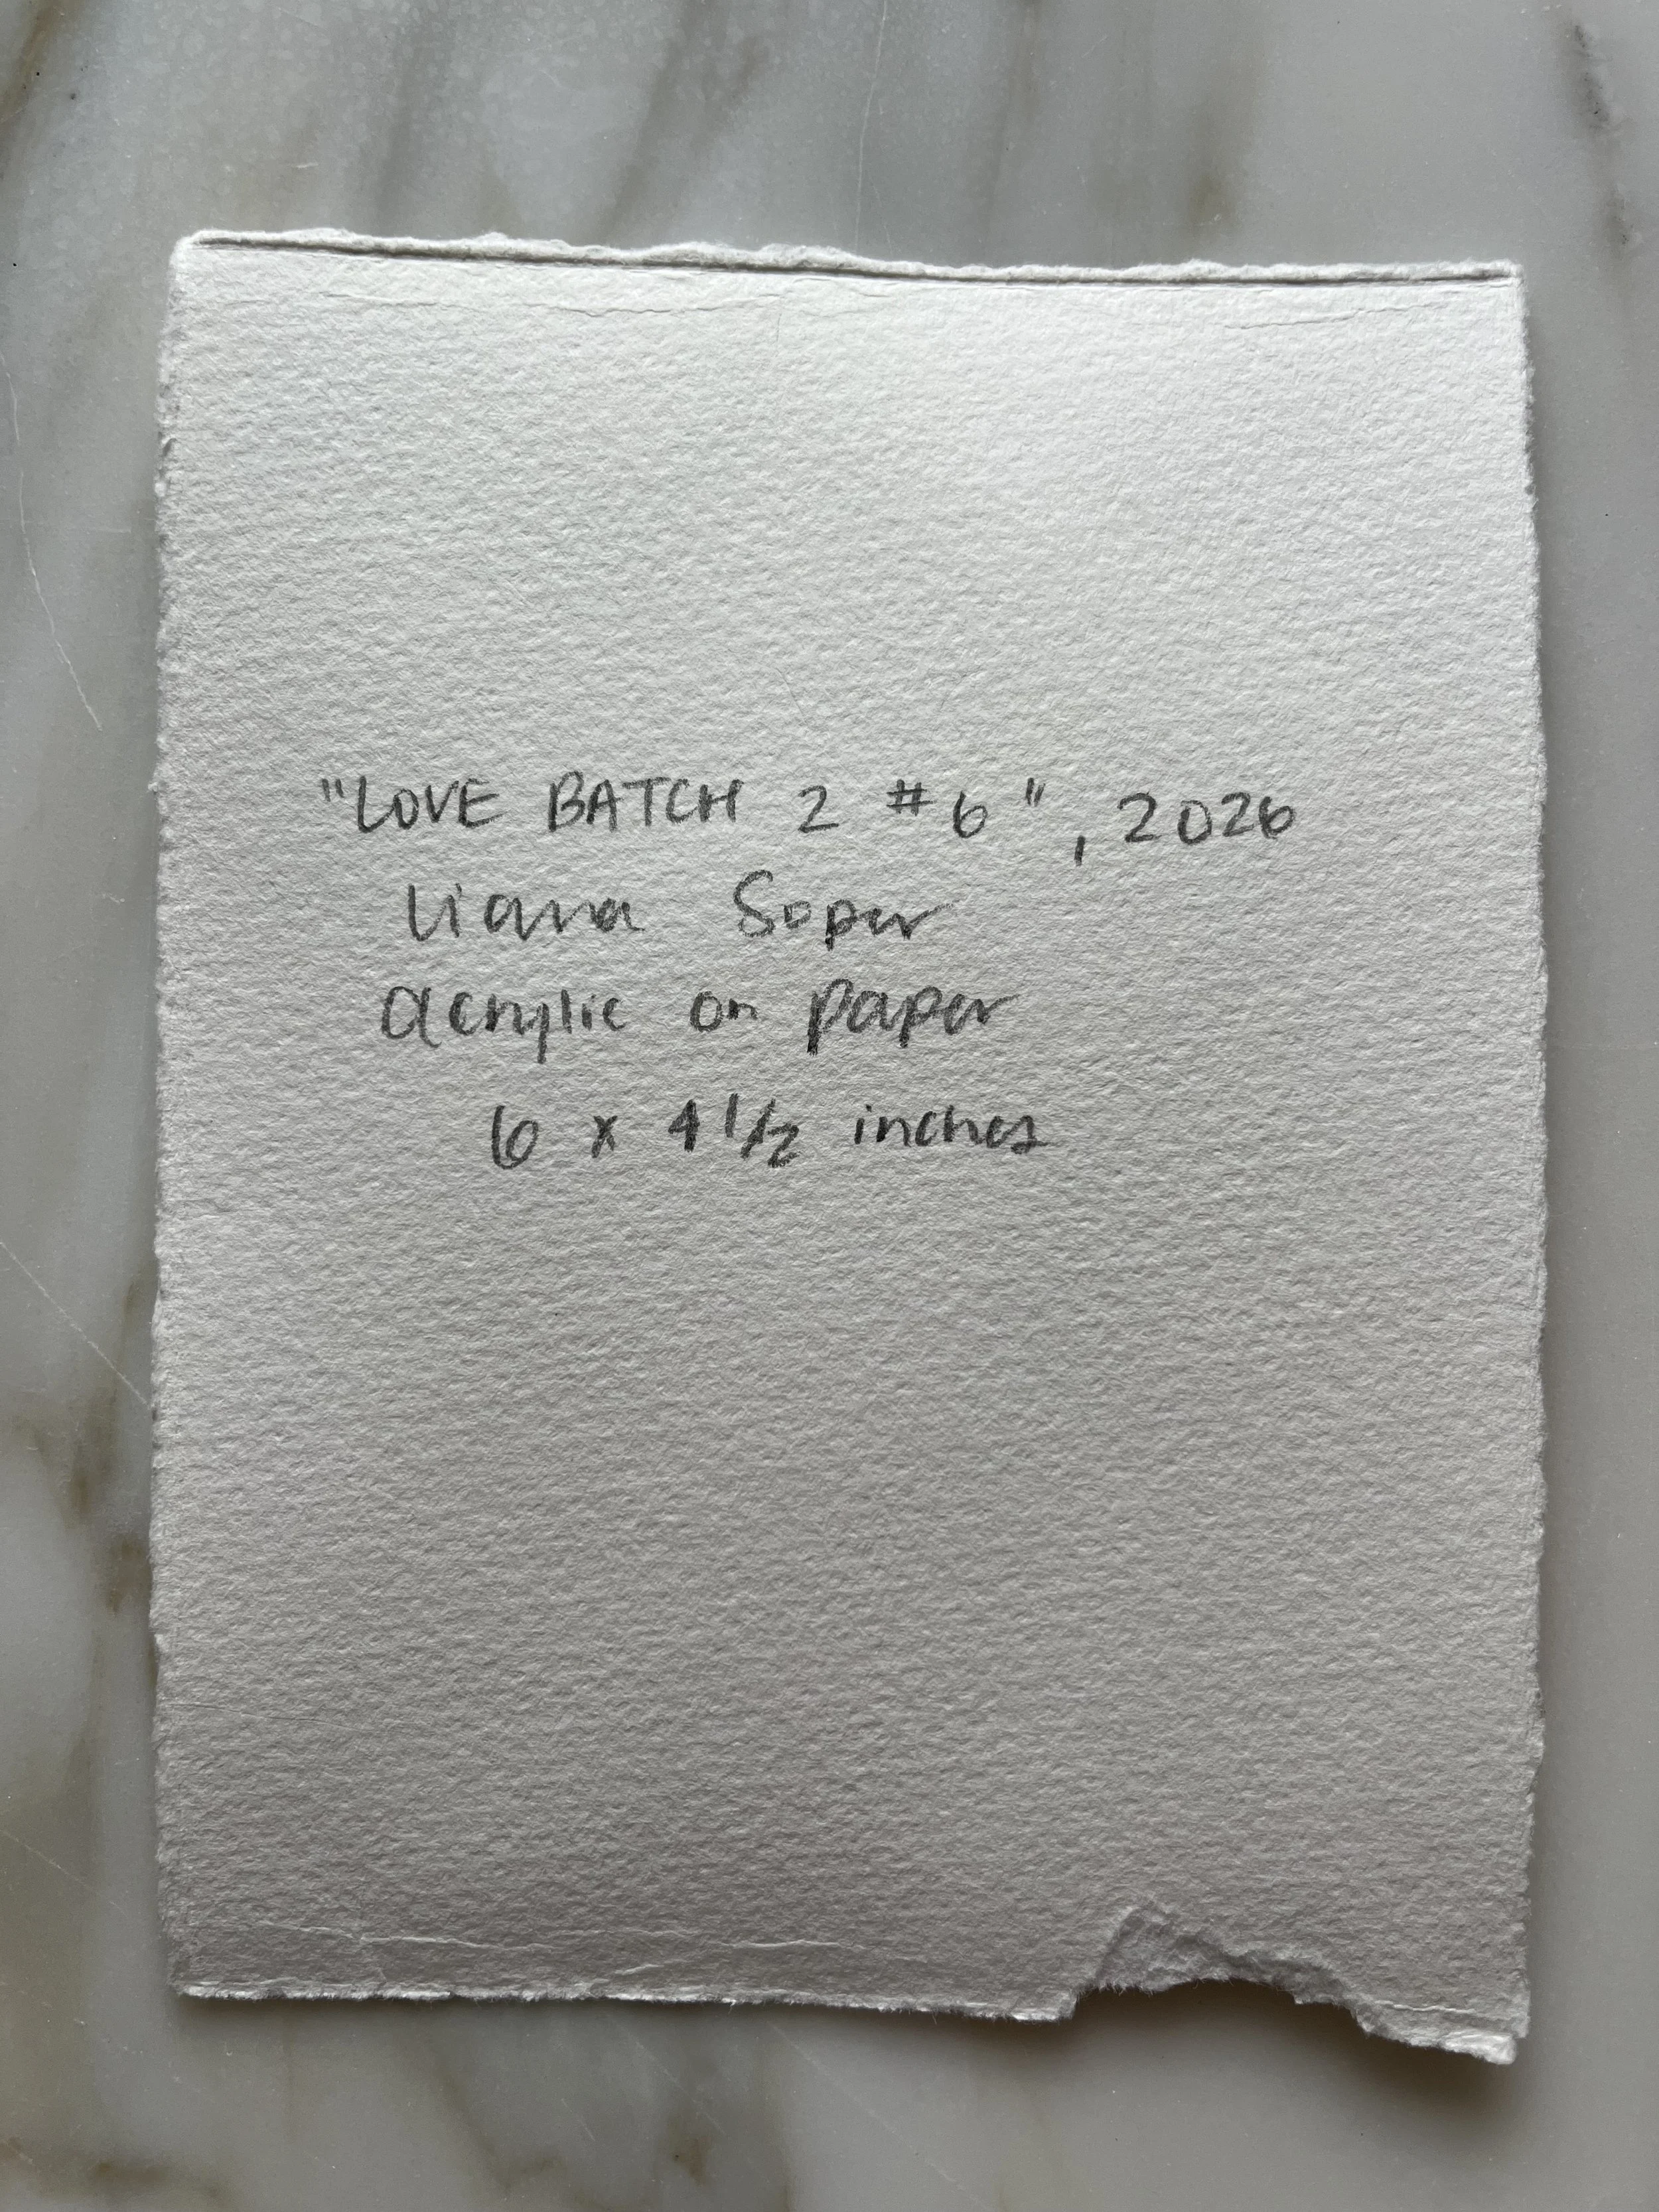 "LOVE BATCH 2 #6", 2026
Liana Soper
acrylic on paper
6 x 4 1/2 inches